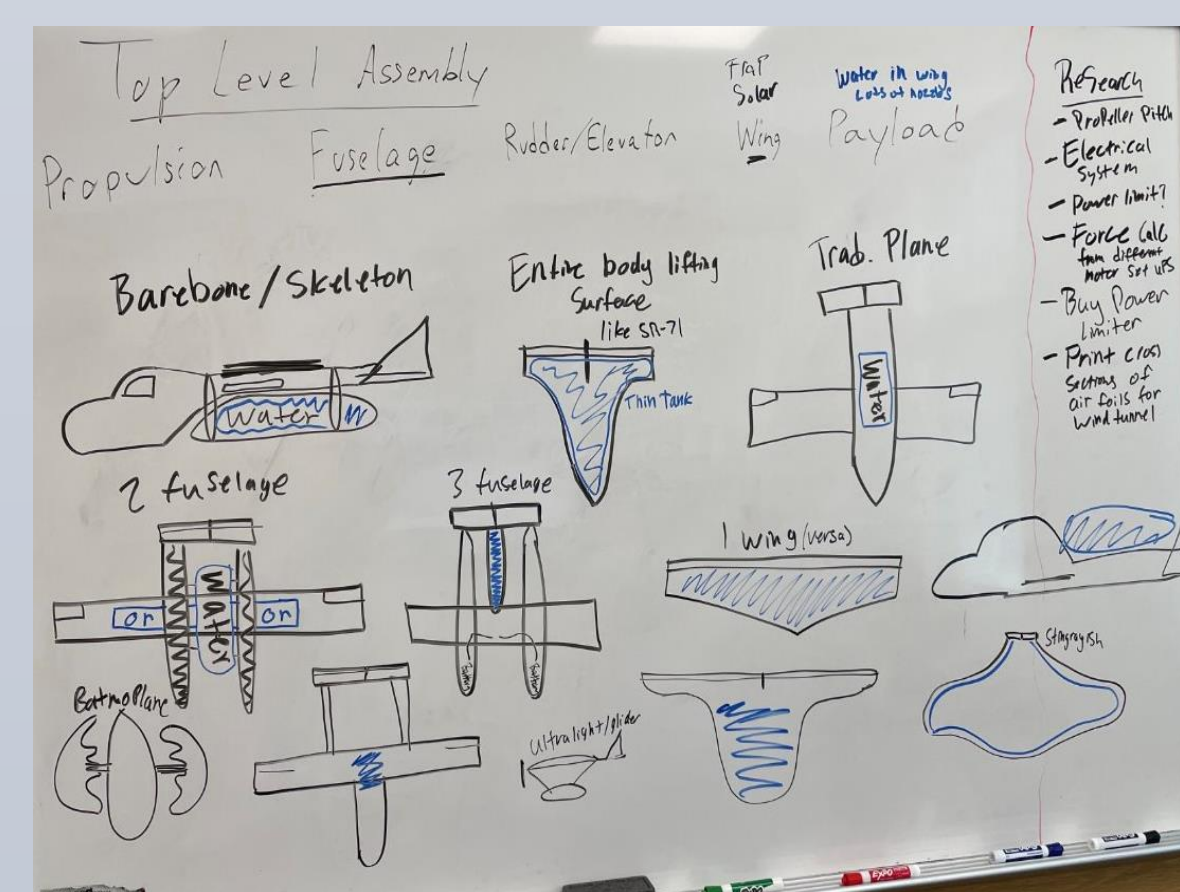 Top Level Assembly
Propulsion
Fuselage
Rudder/Elevator
Flap
Solar
Wing
Water in wing
Lots of nozzles
Payload
Research
- Propeller Pitch
- Electrical
System
- Power limit?
- Force Calc
from different
motor set ups
- Buy Power
Limiter
- Print cross
Sections of
air foils for
wind tunnel
Barebone/Skeleton
Water
Entire body lifting
Surface
like SR-71
Thin Tank
Trad. Plane
Water
2 fuselage
or
Water
or
3 fuselage
1 wing (versa)
Stingrayish
BatmoPlane
Ultralight/glider
EXPO